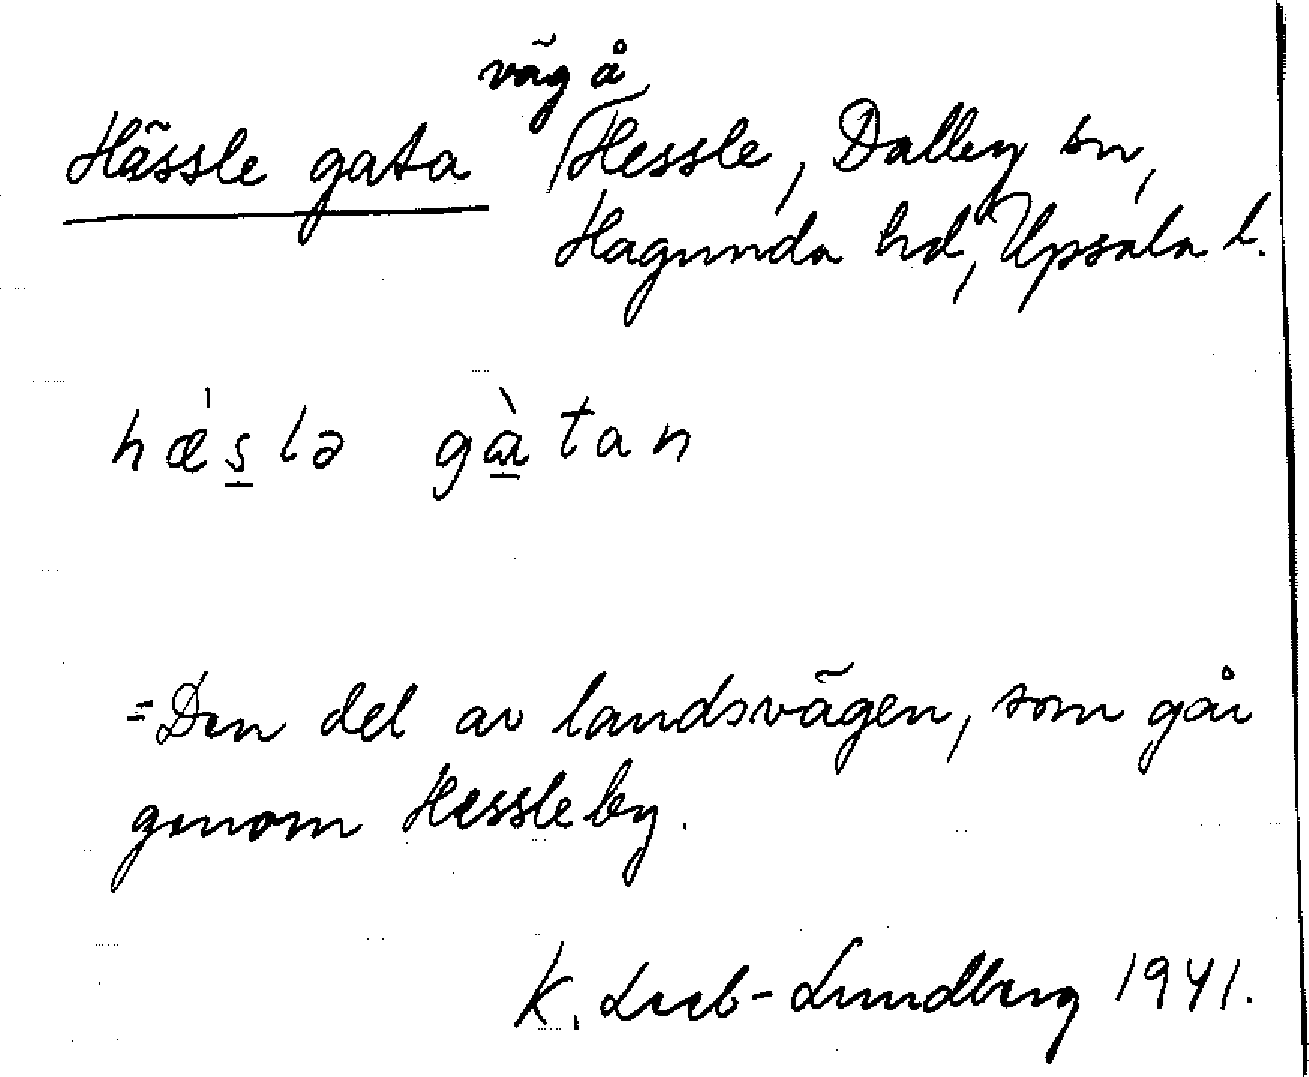 väg å
Hässle gata Hessle, Dalby sn,
Hagunda hd, Upsala l.
hǽs̱lə gà̱tan
=Den del av landsvägen, som går
genom Hessle by.
K. Leeb-Lundberg 1941.